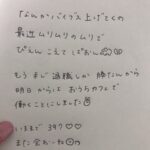 「なんかバイブス上げてくの
最近ムリムリのムリで
ぴえん こえて ぱおん
もう まじ 退職しか 勝たんから
明日 から は おうち カフェで
働くことにしました
いままで 397 ♡♡
また 会おーね